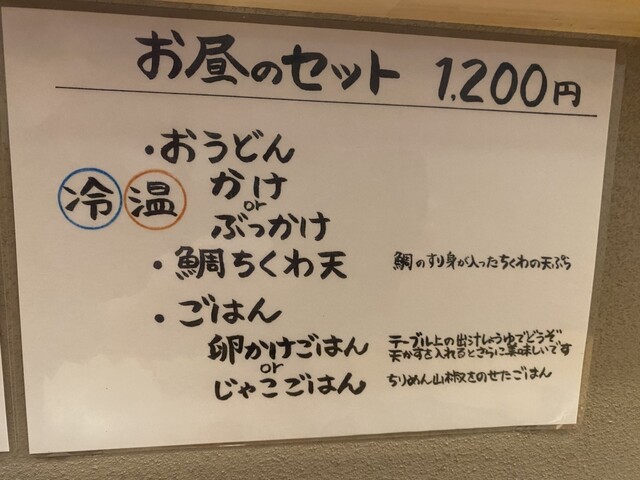 お昼のセット 1,200円
・おうどん
冷 温 かけ
or
ぶっかけ
・鯛ちくわ天 鯛のすり身が入ったちくわの天ぷら
・ごはん
卵かけごはん テーブル上の出汁しょうゆでどうぞ
天かすを入れるとさらに美味しいです
or
じゃこごはん ちりめん山椒をのせたごはん